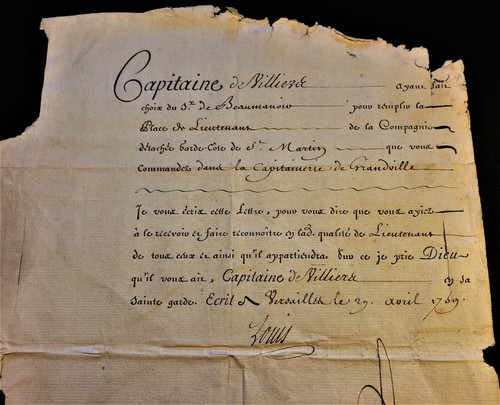 Capitaine de Villiers ayant fait
choix du Sr. de Beaumanoir pour remplir la
Place de Lieutenant de la Compagnie
détachée Garde-Côte de St. Martin que vous
commandez dans la Capitainerie de Grandville
Je vous écris cette Lettre, pour vous dire que vous ayiez
à le recevoir et faire reconnoître en lad. qualité de Lieutenant
de tous ceux et ainsi qu'il appartiendra. Sur ce je prie Dieu
qu'il vous ait, Capitaine de Villiers en sa
sainte garde. Ecrit à Versailles le 29. avril 1769.
Louis